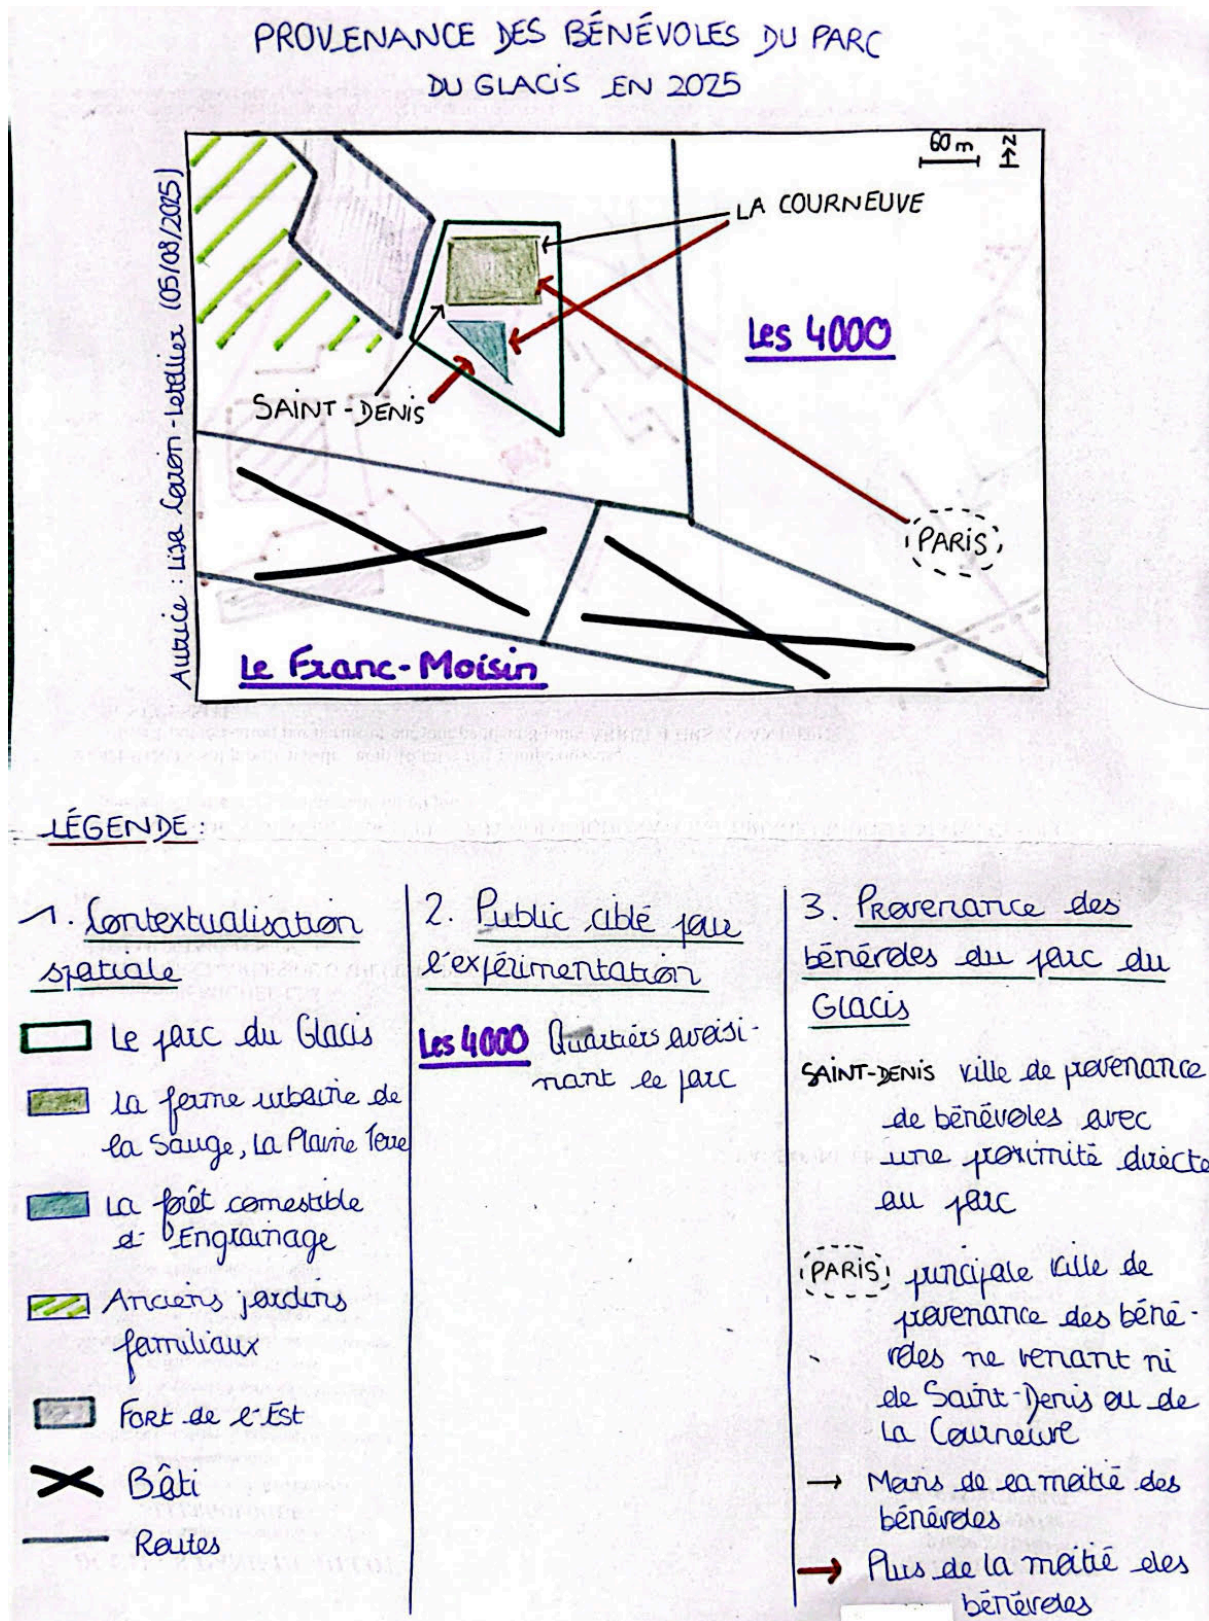 PROVENANCE DES BÉNÉVOLES DU PARC
DU GLACIS EN 2025
Autrice : Lisa Caron-Letellier (05/08/2025)
60 m
N
LA COURNEUVE
Les 4000
SAINT-DENIS
PARIS
Le Franc-Moisin
LÉGENDE :
1. Contextualisation
spatiale
Le parc du Glacis
La ferme urbaine de
la Sauge, La Plaine Terre
La forêt comestible
d'Engrainage
Anciens jardins
familiaux
Fort de l'Est
Bâti
Routes
2. Public ciblé par
l'expérimentation
Les 4000 Quartiers avoisi-
nant le parc
3. Provenance des
bénévoles du parc du
Glacis
SAINT-DENIS ville de provenance
de bénévoles avec
une proximité directe
au parc
PARIS principale ville de
provenance des béné-
voles ne venant ni
de Saint-Denis ou de
La Courneuve
Moins de la moitié des
bénévoles
Plus de la moitié des
bénévoles